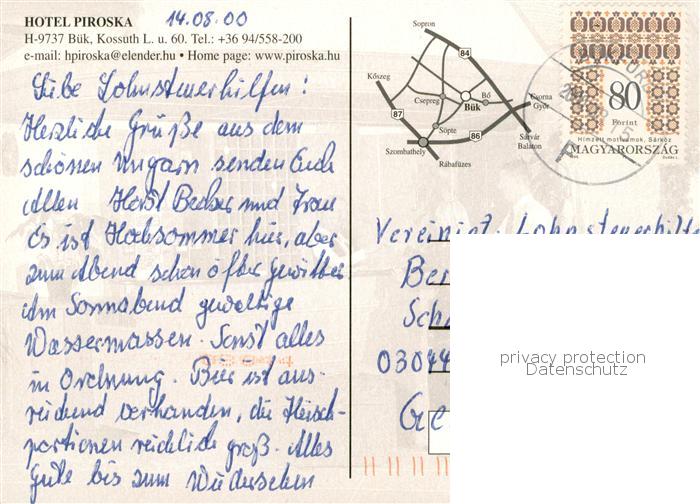 HOTEL PIROSKA 14.08.00
H-9737 Bük, Kossuth L. u. 60. Tel.: +36 94/558-200
e-mail: hpiroska@elender.hu • Home page: www.piroska.hu
Liebe Lohnsteuerhilfen!
Herzliche Grüße aus dem
schönen Ungarn senden Euch
Allen Horst Becker und Frau
Es ist Hochsommer hier, aber
zum Abend schon öfter Gewitter
Am Sonnabend gewaltige
Wassermassen. Sonst alles
in Ordnung. Bier ist aus-
reichend vorhanden, die Fleisch-
portionen reichlich groß. Alles
Gute bis zum Wiedersehen
Sopron
84
Kőszeg
Csepreg
Bő
Bük
Csorna
Győr
87
Sopte
86
Szombathely
Sárvár
Balaton
Rábafüzes
80
Forint
Hímzett motívumok, Sárköz
MAGYARORSZÁG
Vereinigt. Lohnsteuerhilfe
Ber
Sch
03044
Ge
privacy protection
Datenschutz